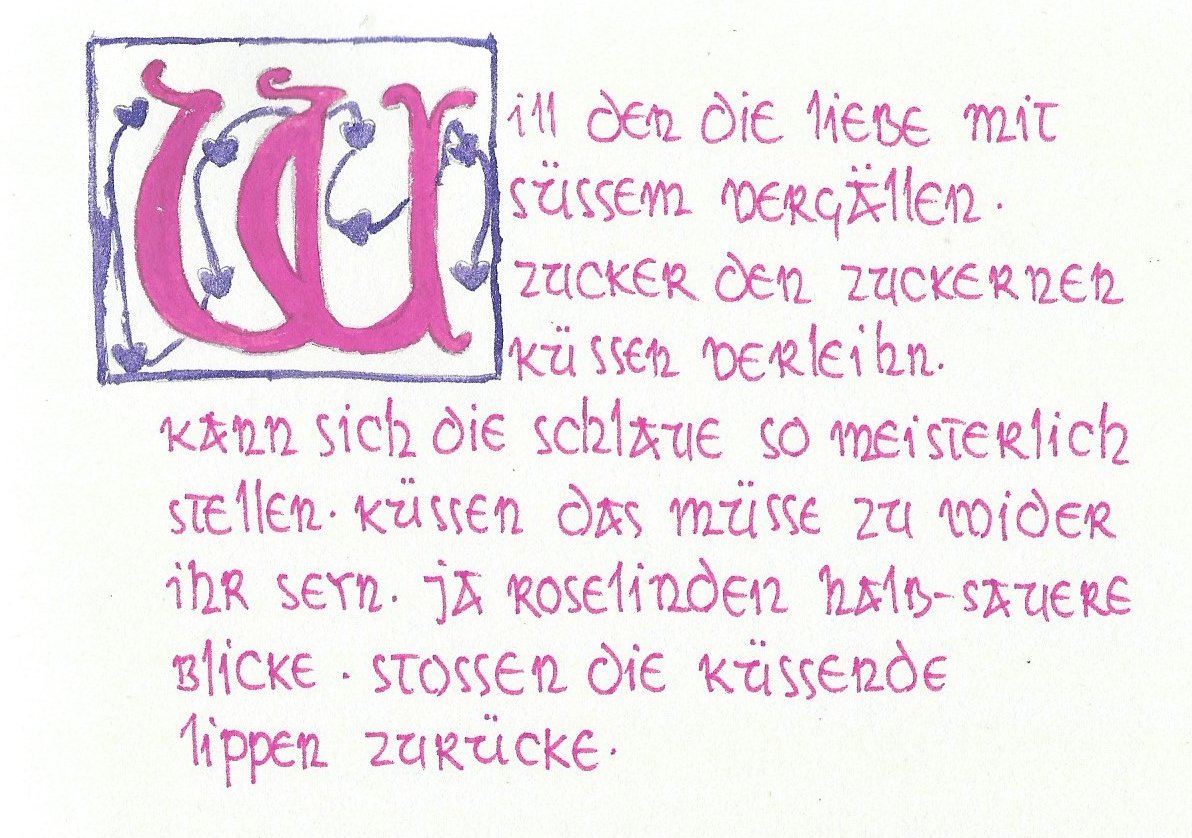 Will den die liebe mit
süssem vergällen.
zucker den zuckernen
küssen verleihn.
kann sich die schlaue so meisterlich
stellen. küssen das müsse zu wider
ihr seyn. ja roselinden halb-sauere
blicke. stossen die küssende
lippen zurücke.